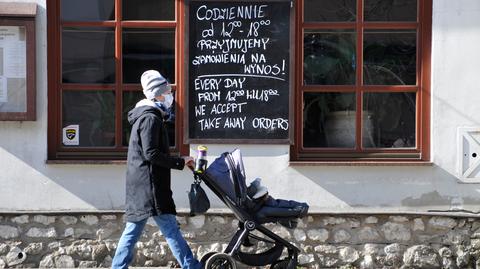 CODZIENNIE
od 12⁰⁰ - 18⁰⁰
PRZYJMUJEMY
ZAMÓWIENIA NA
WYNOS!
EVERY DAY
FROM 12⁰⁰ till 18⁰⁰
WE ACCEPT
TAKE AWAY ORDERS